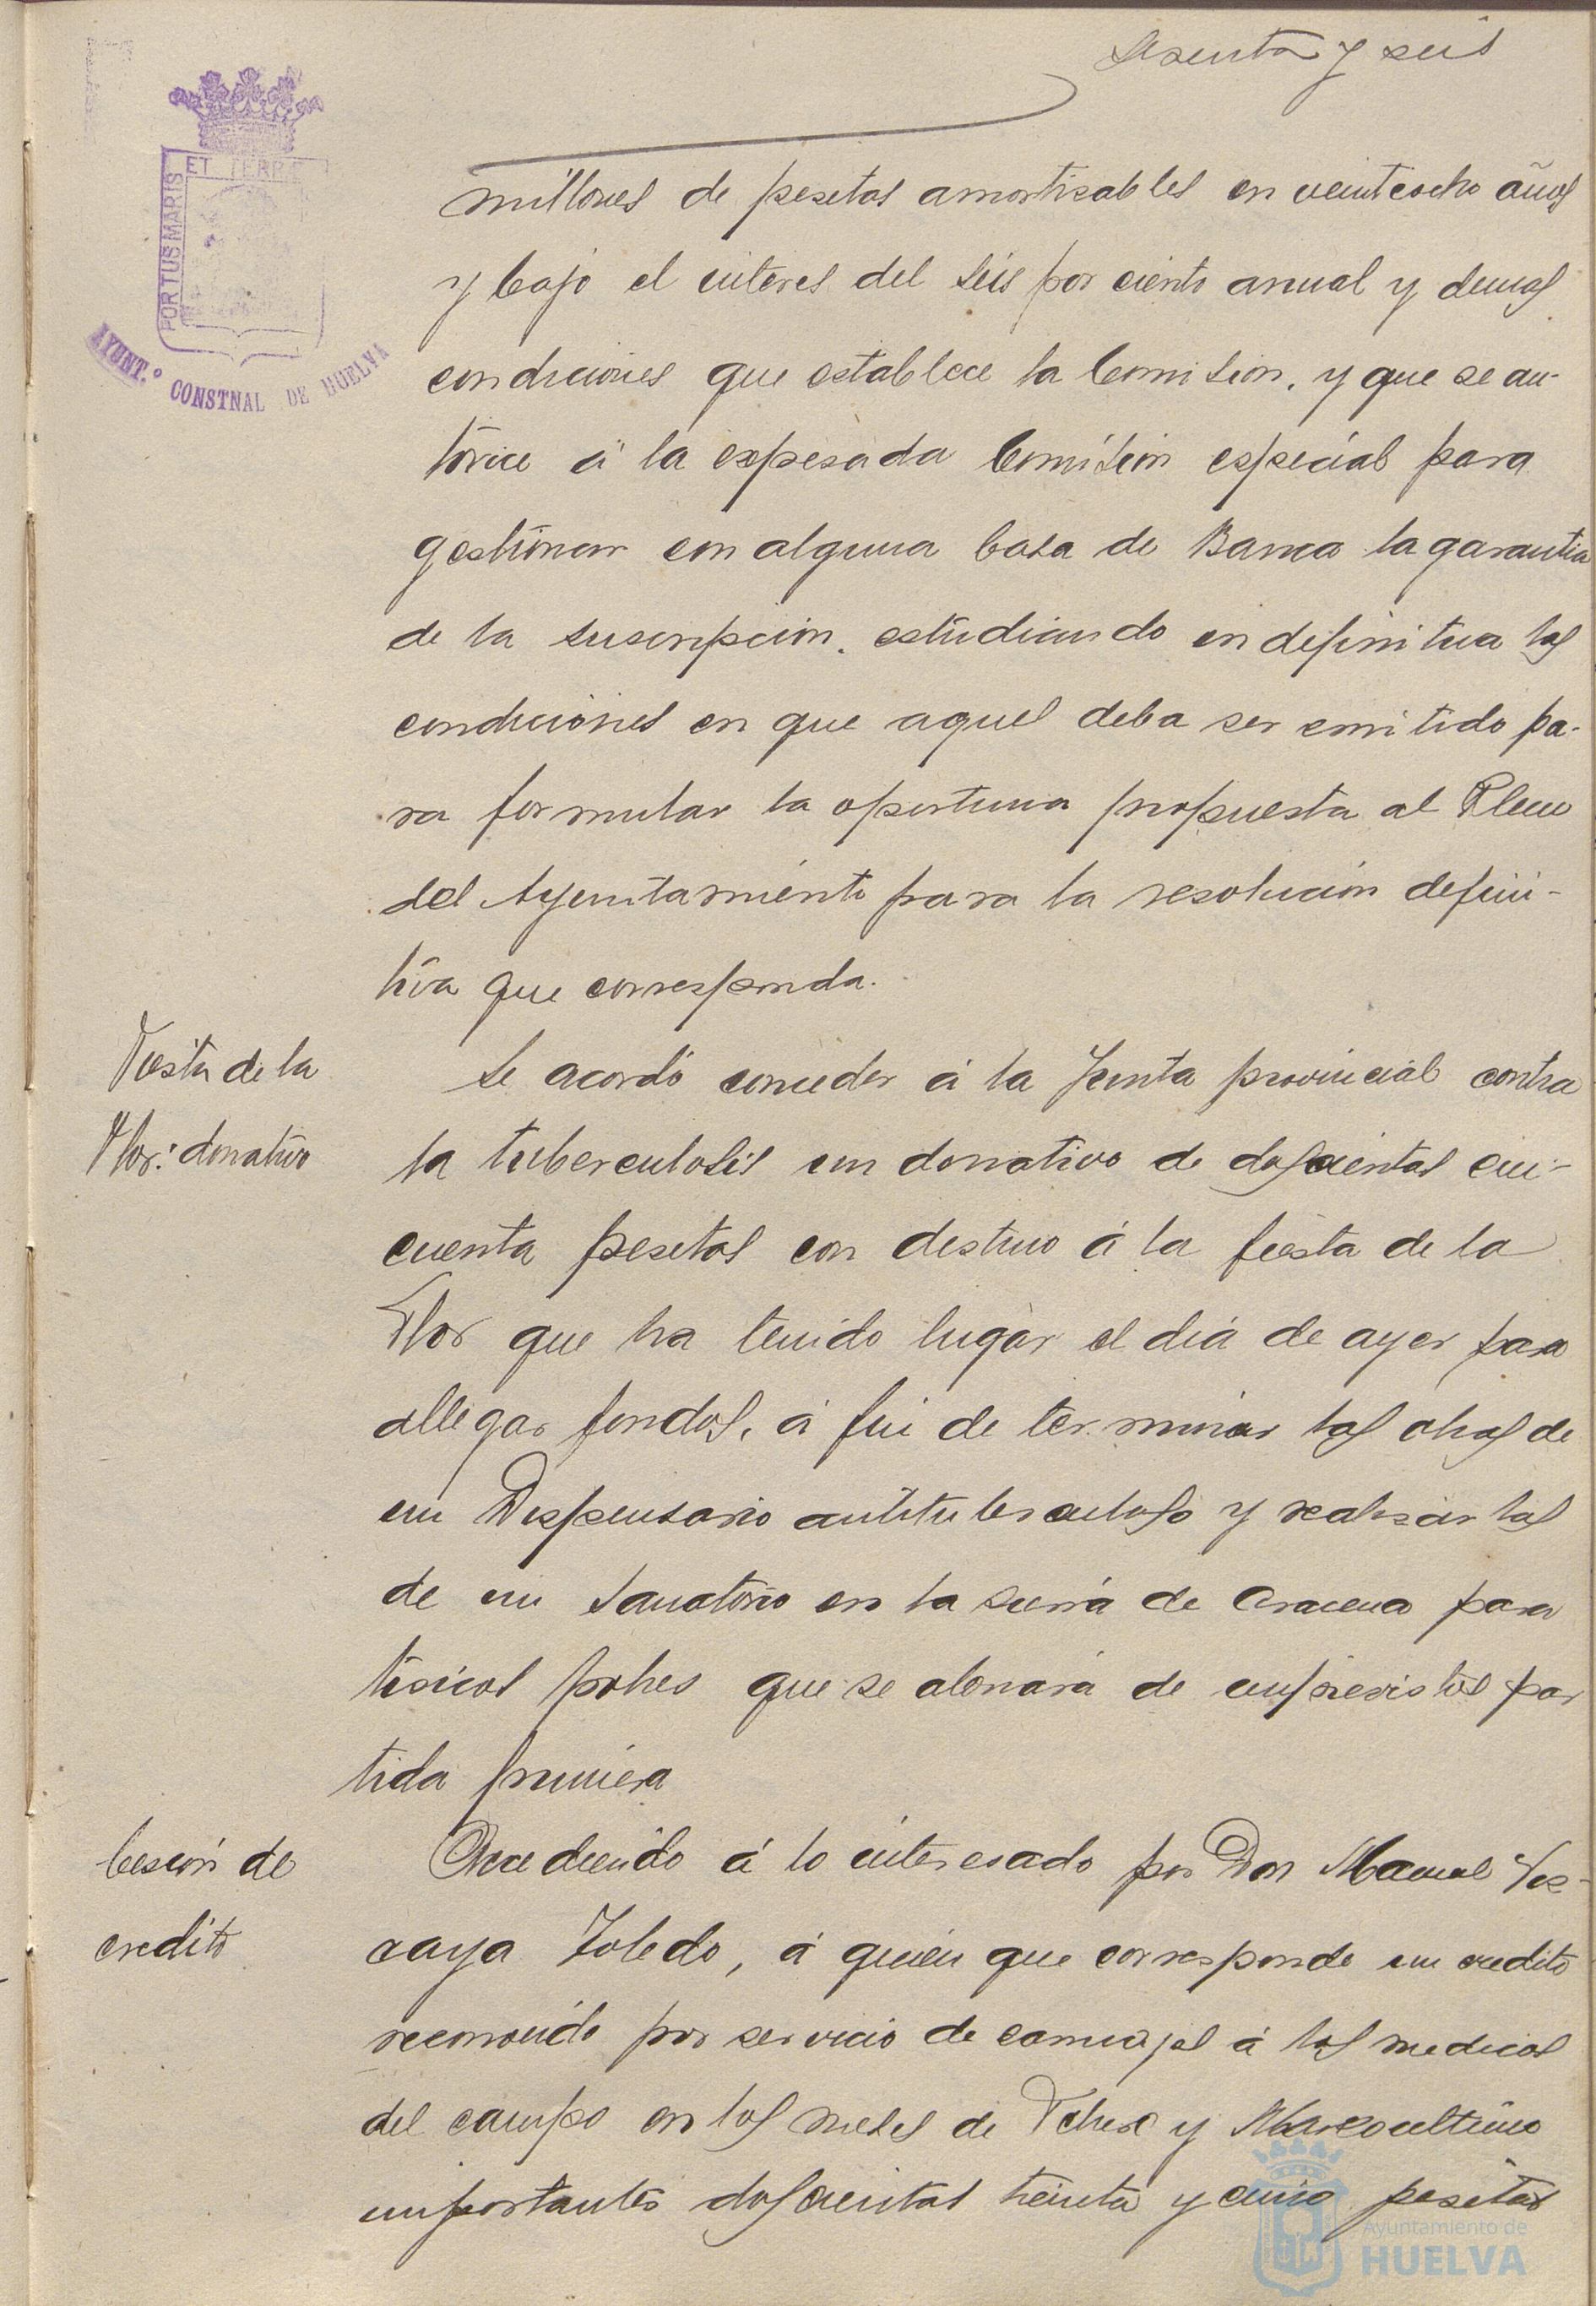 Sesenta y seis
PORTUS MARIS
ET TERRE
AYUNT.º CONSTNAL DE HUELVA
millones de pesetas amortizables en veinteocho años
y bajo el interes del seis por ciento anual y demas
condiciones que establece la Comision, y que se au-
torice á la expresada Comisión especial para
gestionar con alguna Casa de Banca la garantia
de la suscripcion, estudiando en definitiva las
condiciones en que aquel deba ser emitido pa-
ra formular la oportuna propuesta al Pleno
del Ayuntamiento para la resolución defini-
tiva que corresponda.
Fiesta de la
Flor: donativo
Se acordó conceder á la Junta provincial contra
la tuberculosis un donativo de doscientas cin-
cuenta pesetas con destino á la fiesta de la
Flor que ha tenido lugar el dia de ayer para
allegar fondos, á fin de terminar las obras de
un Dispensario antituberculoso y realizar las
de un Sanatorio en la sierra de Aracena para
tísicos pobres que se abonará de imprevistos par
tida primera
Cesión de
credito
Accediendo á lo interesado por Don Manuel Viz-
caya Toledo, á quien que corresponde un credito
reconocido por servicio de carruajes á los medicos
del campo en los meses de Febrero y Marzo ultimo
importantes doscientas treinta y cinco pesetas
Ayuntamiento de
HUELVA